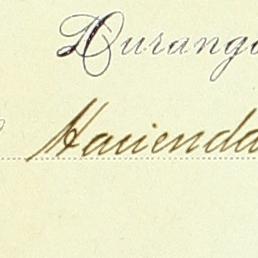 Durango
Hacienda